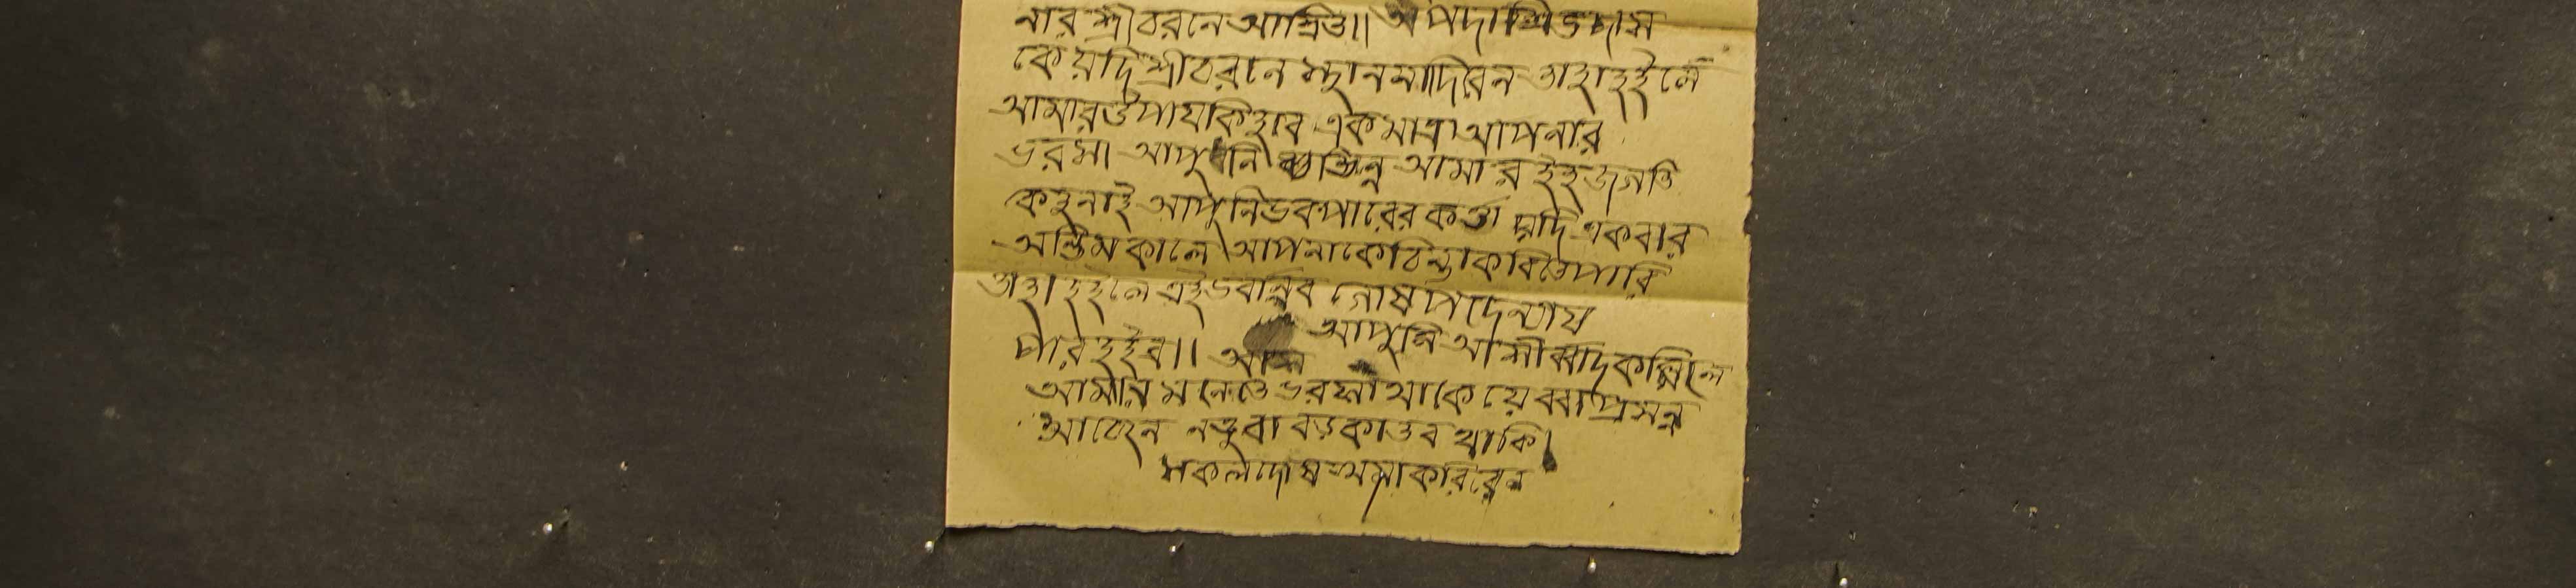 নার শ্রীচরনে আশ্রিত।। শ্রীপদাশ্রিত দাস
কে যদি শ্রীচরনে স্থান না দিবেন তাহা হইলে
আমার উপায় কি হবে একমাত্র আপনার
ভরসা আপুনি ভিন্ন আমার ইহ জগতে
কেহ নাই আপুনি ভবপারের কর্ত্তা যদি একবার
অন্তিম কালে আপনাকে চিন্তা করিতে পারি
তাহা হইলে এই গোষ্পদের ন্যায়
পার হইব।। আপুনি আশীর্ব্বাদ করিলে
আমার মনেতে ভরসা থাকে যে প্রসন্ন
আছেন নতুবা বড় কাতর থাকি।
সকল দোষ ক্ষমা করিবেন